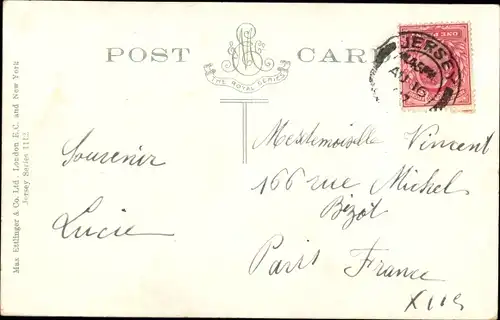 POST CARD
THE ROYAL SERIES
ONE PENNY
JERSEY
AU 16
Max Ettlinger & Co. Ltd., London E.C. and New York
Jersey Series 1112
Souvenir
Lucie
Mesdemoiselle Vincent
166 rue Michel
Bizot
Paris France
XIIe